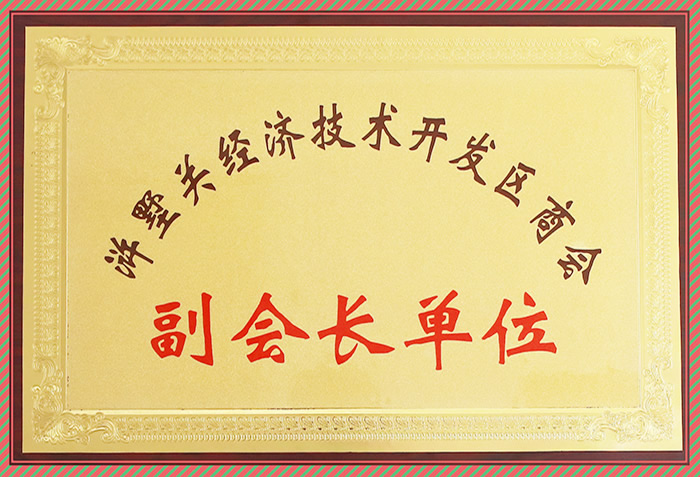 浒墅关经济技术开发区商会
副会长单位